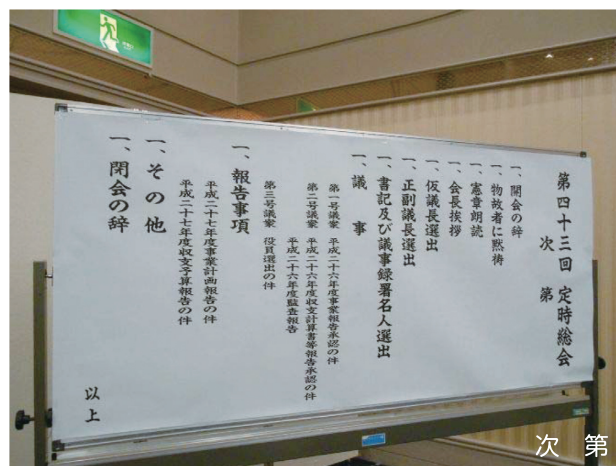 第四十三回 定時総会
次 第
一、開会の辞
一、物故者に黙祷
一、憲章朗読
一、会長挨拶
一、仮議長選出
一、正副議長選出
一、書記及び議事録署名人選出
一、議 事
第一号議案 平成二十六年度事業報告承認の件
第二号議案 平成二十六年度収支計算書等報告承認の件
平成二十六年度監査報告
第三号議案 役員選出の件
一、報告事項
平成二十七年度事業計画報告の件
平成二十七年度収支予算報告の件
一、その他
一、閉会の辞
以上
次 第